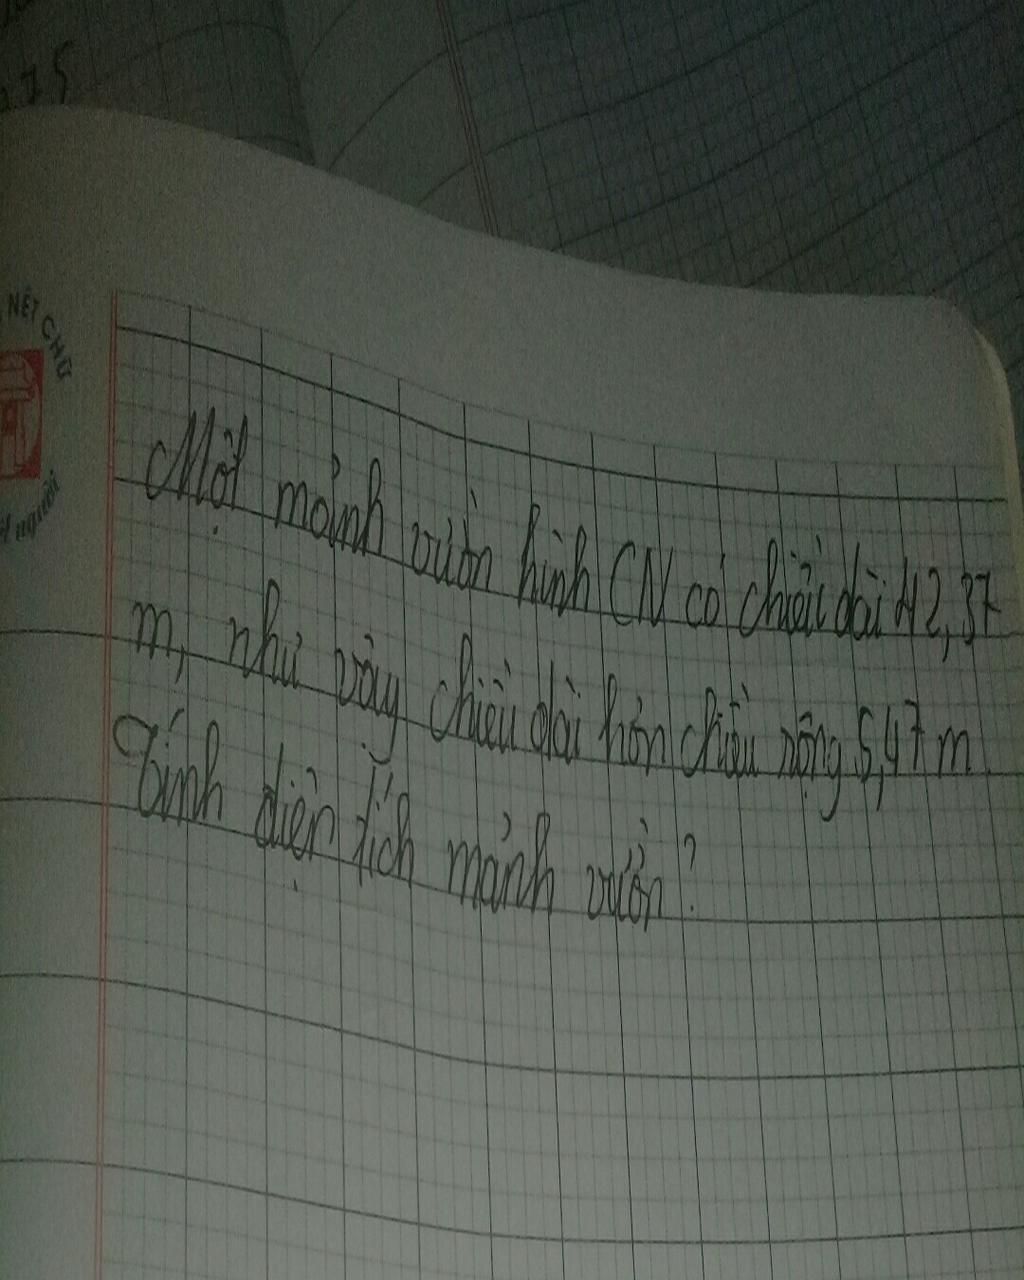 275
NÉT CHỮ
nết người
Một mảnh vườn hình CN có chiều dài 42,37
m, như vậy chiều dài hơn chiều rộng 5,47 m
Tính diện tích mảnh vườn?